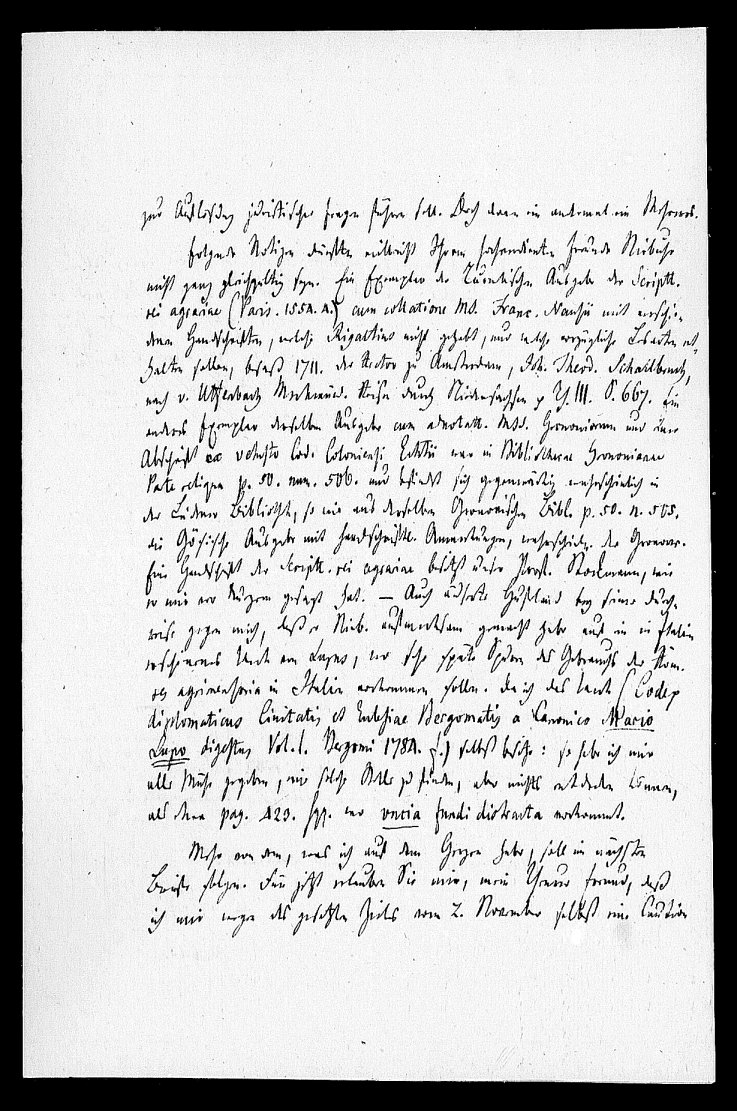 zur Auflösung juristischer Fragen führen soll. Doch davon ein andermal ein Mehreres.
Folgende Notizen dürften vielleicht Ihrem hochverdienten Freunde Niebuhr
nicht ganz gleichgültig seyn. Ein Exemplar der Turnebischen Ausgabe der Scriptt.
rei agrariae (Paris. 1554. 4.) cum collatione MS. Franc. Nansii mit verschie-
denen Handschriften, welche Rigaltius nicht gehabt, und welche vorzügliche Lesarten ent-
halten sollen, besaß 1711. der Rector zu Amsterdam, Joh. Theod. Schallbruch,
nach v. Uffenbach Merkwürd. Reisen durch Niedersachsen p Th. III. S. 667. Ein
anderes Exemplar derselben Ausgabe cum adnotatt. MSS. Gronoviorum und einer
Abschrift ex vetusto Cod. Coloniensi Ecktii war in Bibliotheca Gronoviana
Parte reliqua p. 50. num. 506. und befindet sich gegenwärtig wahrscheinlich in
der Leidener Bibliothek, so wie aus derselben Gronovischen Bibl. p. 50. n. 505.
die Gösische Ausgabe mit handschriftl. Anmerkungen, wahrscheinl. der Gronove.
Eine Handschrift der Scriptt. rei agrariae besitzt unser Prof. Rockmann, wie
er mir vor Kurzem gesagt hat. — Auch äußerte bey seiner Durch-
reise gegen mich, daß er Nieb. aufmerksam gemacht habe auf ein in Italien
erschienenes Werk von Lupus, wo sehr späte Spuren des Gebrauchs der Röm.
agrimensoria in Italien vorkommen sollen. Da ich das Werk (Codex
diplomaticus Civitatis et Ecclesiae Bergomatis a Canonico Mario
Lupo digestus Vol. I. Bergomi 1784. f.) selbst besitze: so habe ich mir
alle Mühe gegeben, eine solche Stelle zu finden, aber nichts entdecken können,
als denn pag. 423. sqq. wo uncia fundi distracta vorkommt.
Mehr von dem, was ich auf dem Herzen habe, soll im nächsten
Briefe folgen. Für jetzt erlauben Sie mir, mein Theurer Freund, daß
ich mir wegen des gesetzten Zieles vom 2. November selbst eine Caution